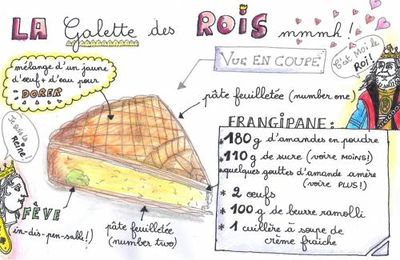 LA Galette des ROIS mmmh!
VUE EN COUPE
C'est Moi le
Roi!
mélange d'un jaune
d'œuf + d'eau pour
DORER
pâte feuilletée (number one)
FRANGIPANE:
* 180 g d'amandes en poudre
* 110 g de sucre (voire MOINS!)
* quelques gouttes d'amande amère
(voire PLUS!)
* 2 œufs
* 100 g de beurre ramolli
* 1 cuillère à soupe de
crème fraîche
Je suis la
Reine!
FÈVE
(in-dis-pen-sable!)
pâte feuilletée
(number two)